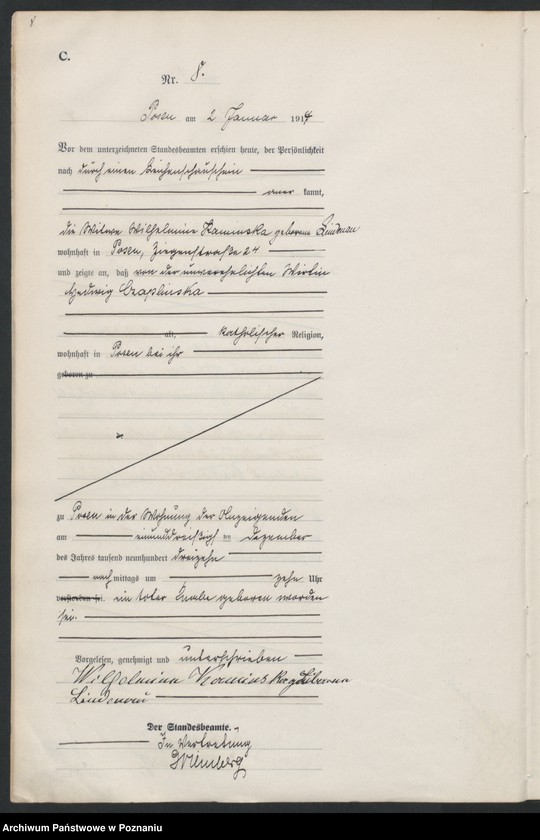 C.
Nr. 8.
Posen am 2 Januar 1914
Vor dem unterzeichneten Standesbeamten erschien heute, der Persönlichkeit
nach durch einen Leichenschauschein
aner kannt,
die Witwe Wilhelmine Kaminska geborene Lindenau
wohnhaft in Posen, Ziegenstraße 24
und zeigte an, daß von der unverehelichten Wirtin
Hedwig Czaplinska
alt, katholischer Religion,
wohnhaft in Posen bei ihr
geboren zu
zu Posen in der Wohnung der Anzeigenden
am einunddreißigsten Dezember
des Jahres tausend neunhundert dreizehn
nach mittags um zehn Uhr
verstorben sei. ein toter Knabe geboren worden
sei.
Vorgelesen, genehmigt und unterschrieben
Wilhelmina Kaminska
Lindenau
Der Standesbeamte.
In Vertretung
Archiwum Państwowe w Poznaniu